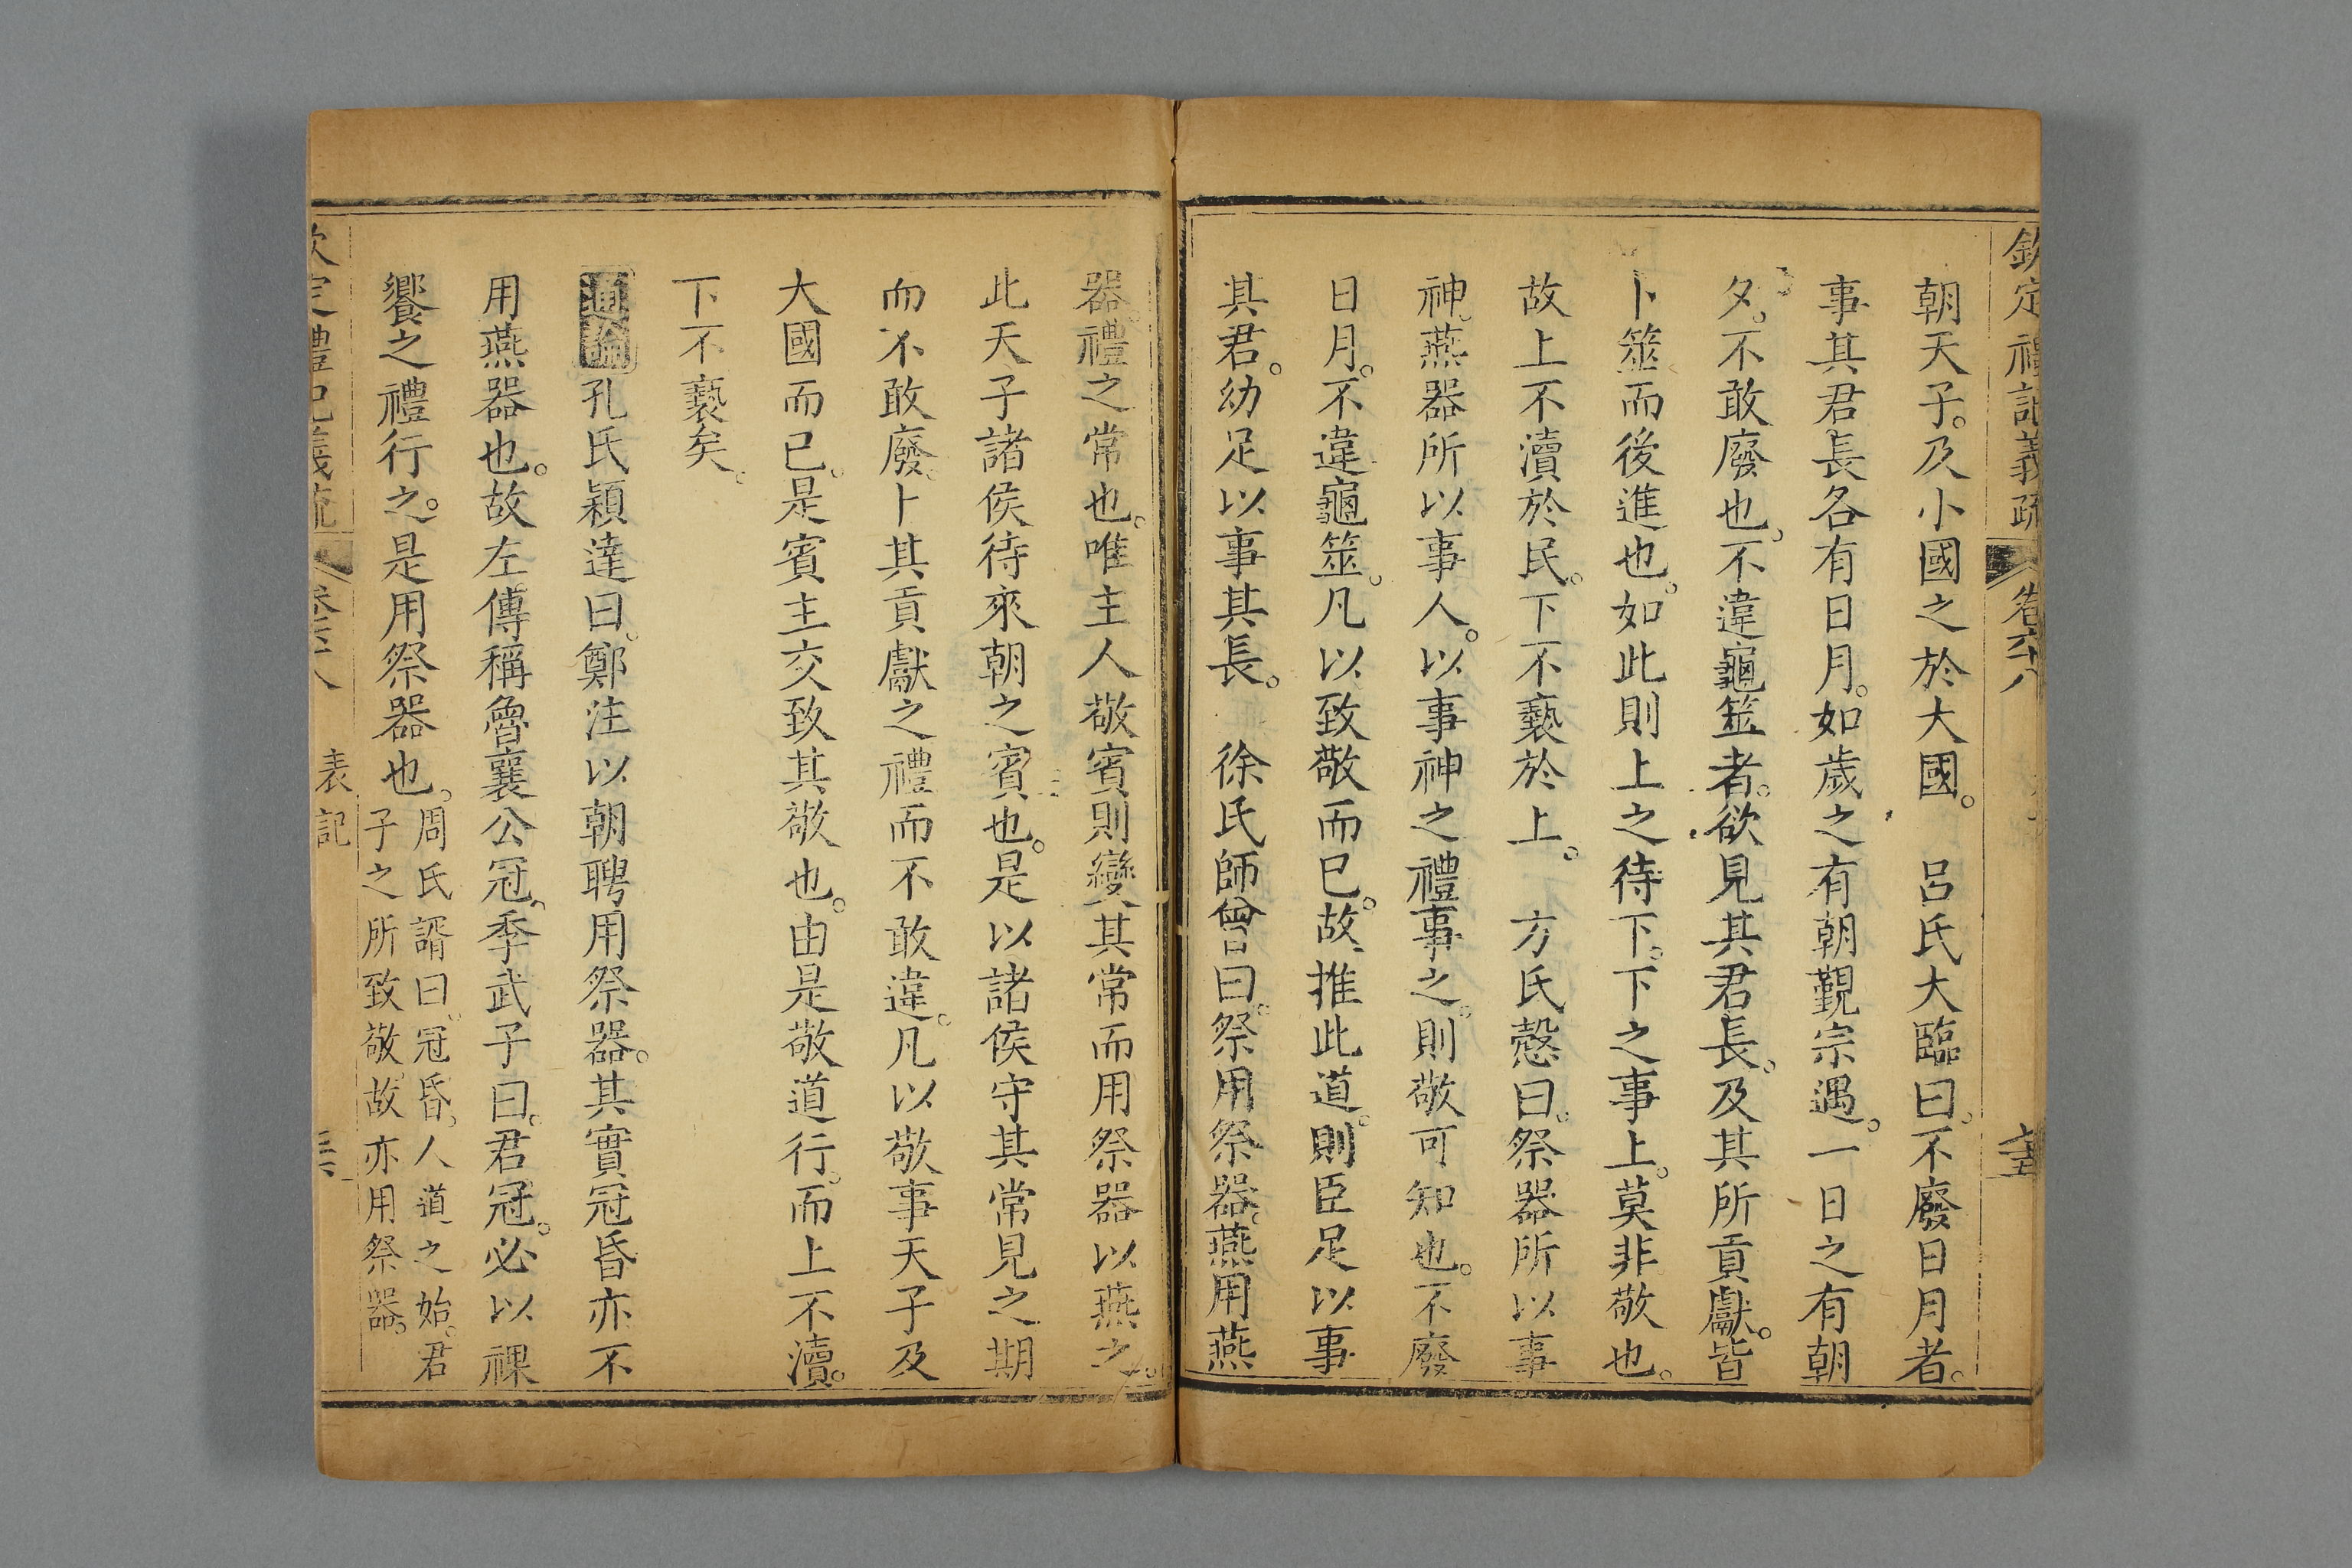 欽定禮記義疏 卷六十八
朝天子。及小國之於大國。 呂氏大臨曰。不廢日月者。
事其君長各有日月。如歲之有朝覲宗遇。一日之有朝
夕。不敢廢也。不違龜筮者。欲見其君長。及其所貢獻。皆
卜筮而後進也。如此則上之待下。下之事上。莫非敬也。
故上不瀆於民。下不褻於上。 方氏慤曰。祭器所以事
神。燕器所以事人。以事神之禮事之。則敬可知也。不廢
日月。不違龜筮。凡以致敬而已。故推此道。則臣足以事
其君。幼足以事其長。 徐氏師曾曰。祭用祭器。燕用燕
器。禮之常也。唯主人敬賓則變其常而用祭器以燕之。
此天子諸侯待來朝之賓也。是以諸侯守其常見之期
而不敢廢。卜其貢獻之禮而不敢違。凡以敬事天子及
大國而已。是賓主交致其敬也。由是敬道行。而上不瀆。
下不褻矣。
通論孔氏穎達曰。鄭注以朝聘用祭器。其實冠昏亦不
用燕器也。故左傳稱魯襄公冠。季武子曰。君冠。必以祼
饗之禮行之。是用祭器也。
周氏諝曰。冠昏。人道之始。君
子之所致敬。故亦用祭器。
欽定禮記義疏 卷六十八 表記